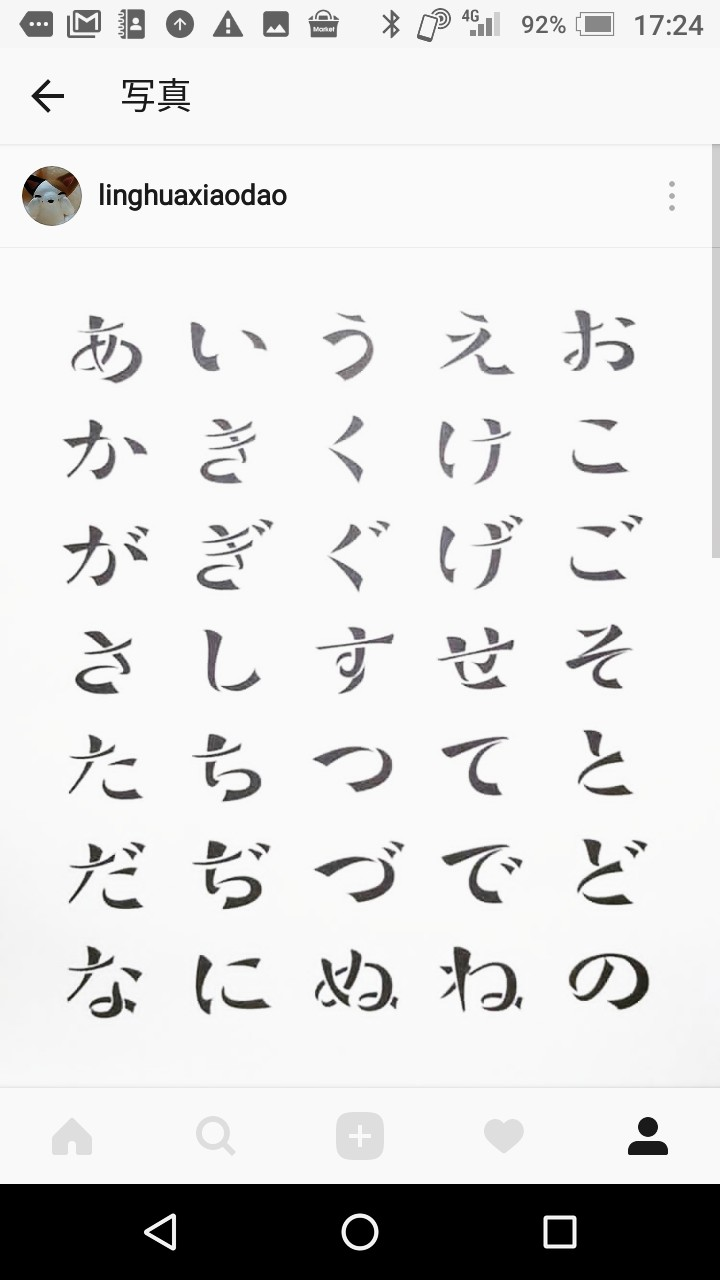 4G 92% 17:24
Market
写真
linghuaxiaodao
あ い う え お
か き く け こ
が ぎ ぐ げ ご
さ し す せ そ
た ち つ て と
だ ぢ づ で ど
な に ぬ ね の